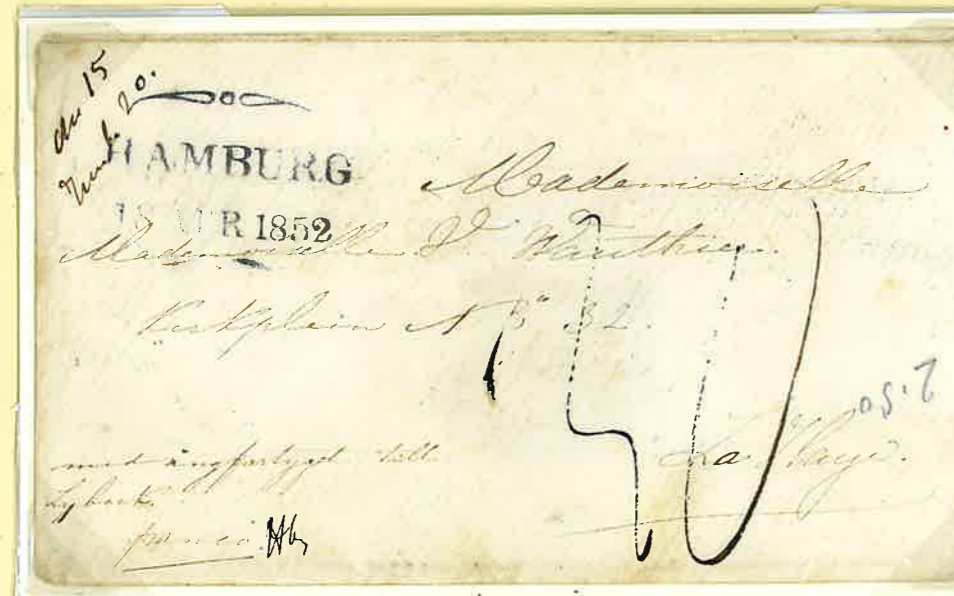 HAMBURG
APR 1852
Mademoiselle
Mademoiselle V. Wauthier
Kerkplein No 32.
40
La Haye.
med ångfartyget till
Lybeck
franco Hbg
2.50